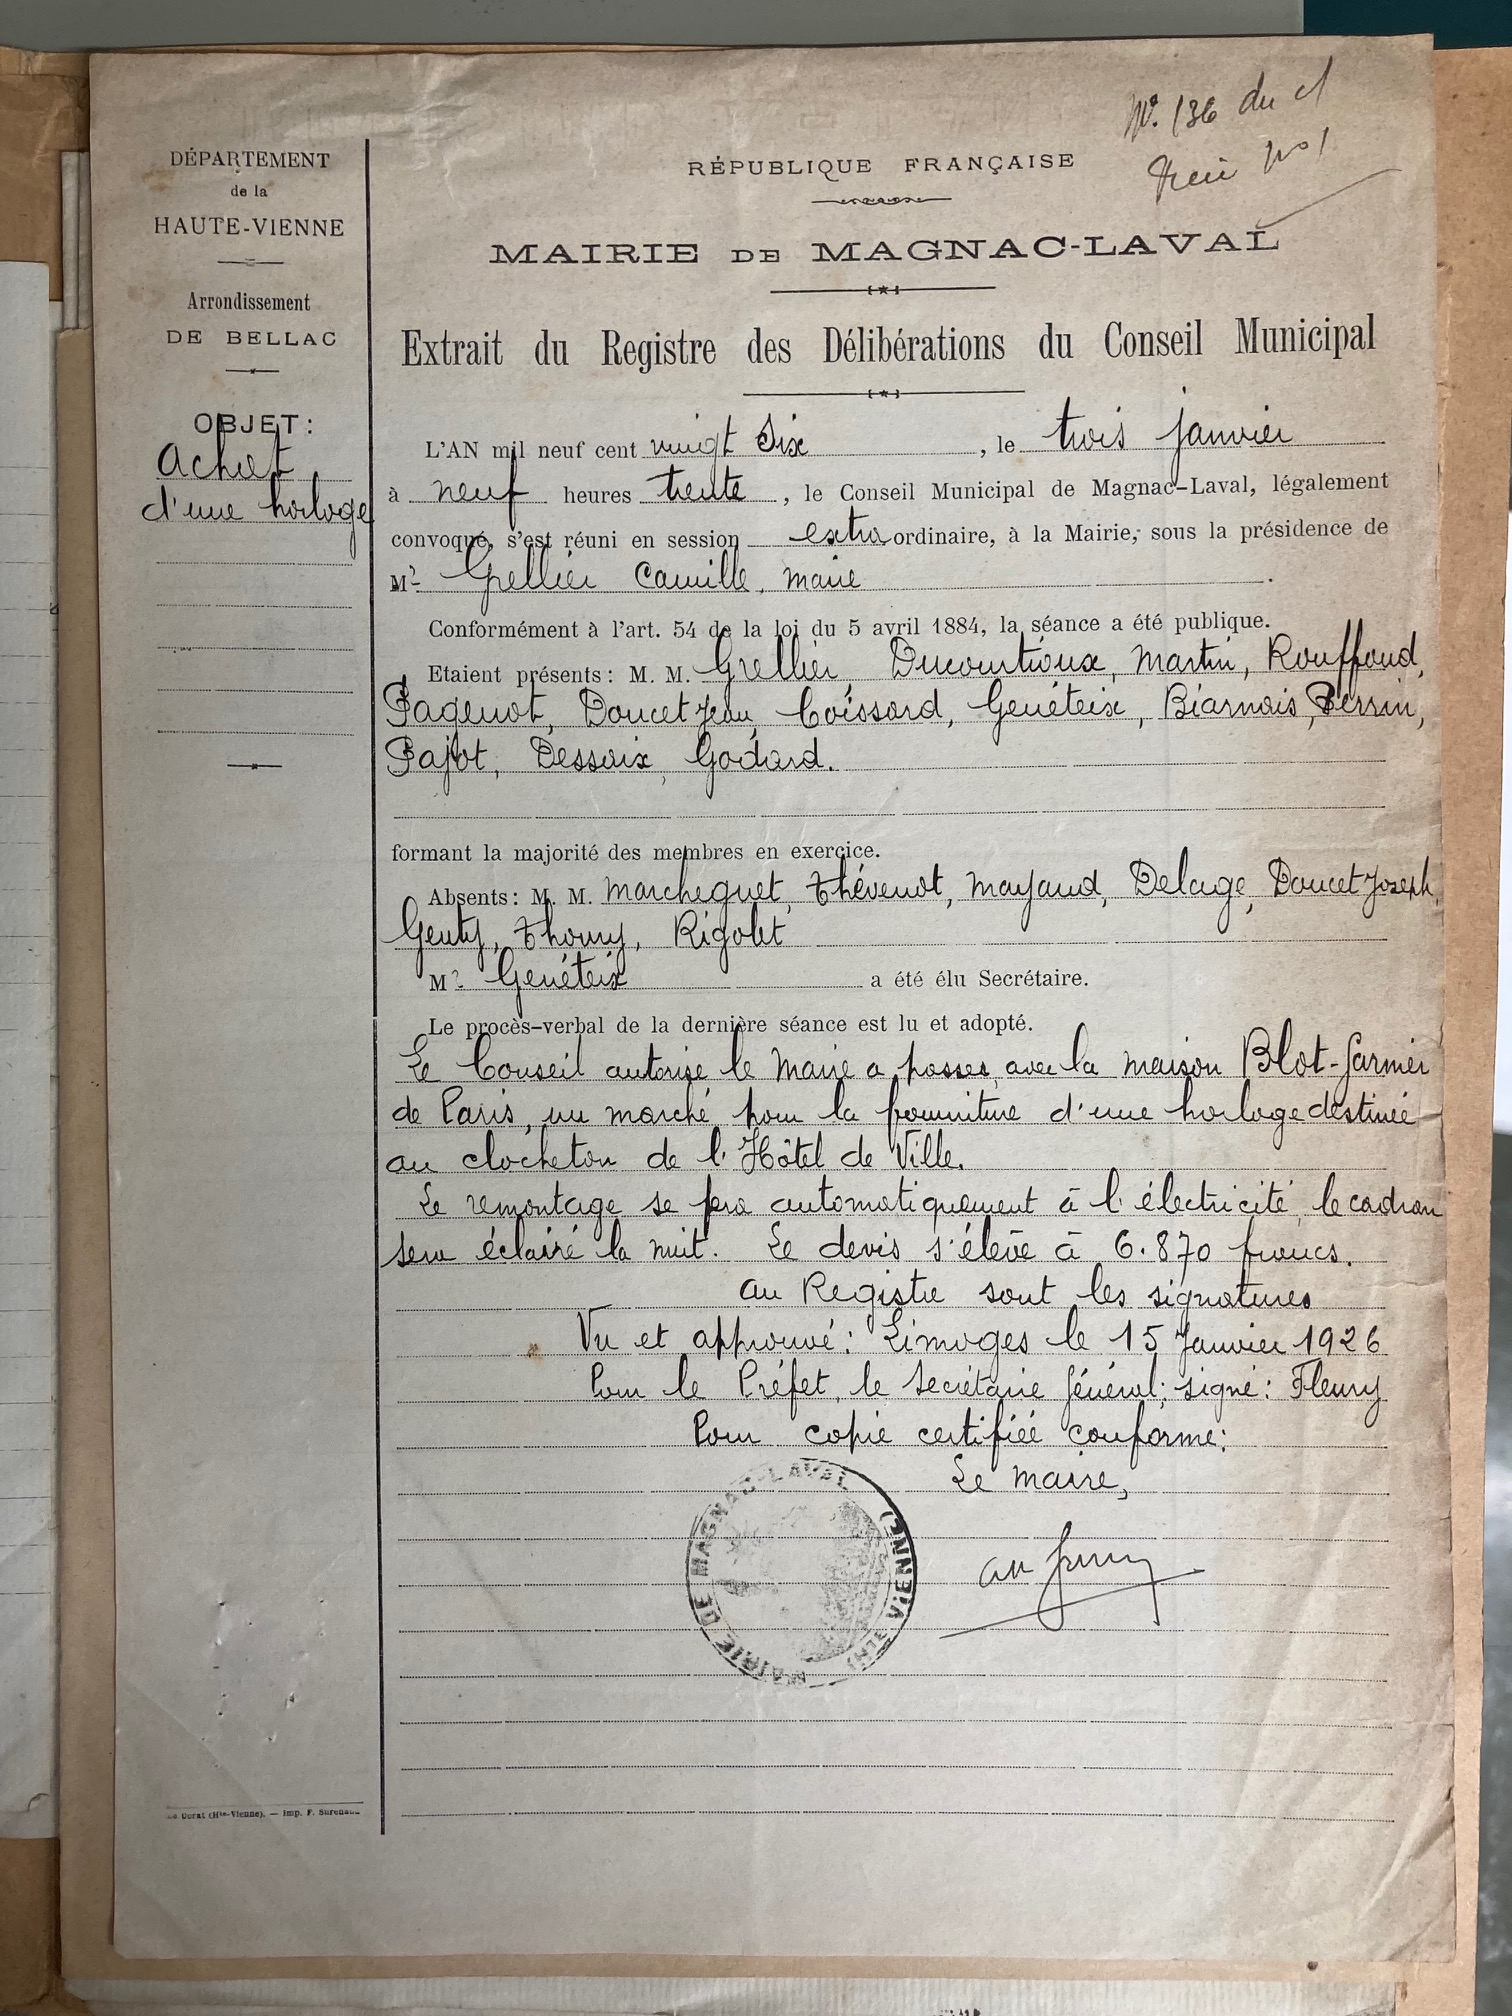 Nº. 136 du
Nº 1
DÉPARTEMENT
de la
HAUTE-VIENNE
Arrondissement
DE BELLAC
OBJET :
Achat
d'une horloge
RÉPUBLIQUE FRANÇAISE
MAIRIE DE MAGNAC-LAVAL
Extrait du Registre des Délibérations du Conseil Municipal
L'AN mil neuf cent vingt Six , le trois janvier
à neuf heures trente , le Conseil Municipal de Magnac-Laval, légalement
convoqué, s'est réuni en session extraordinaire, à la Mairie, sous la présidence de
Mr Grellier Camille, maire .
Conformément à l'art. 54 de la loi du 5 avril 1884, la séance a été publique.
Etaient présents : M. M. Grellier, Ducourtioux, Martin, Rouffaud,
Pagenot, Doucet Jean, Coissard, Genéteix, Biarnais, Perrin,
Pajot, Dessaix, Godard.
formant la majorité des membres en exercice.
Absents : M. M. Marcheguet, Thévenot, Mayaud, Delage, Doucet Joseph,
Genty, Thomy, Rigolet
Mr Genéteix a été élu Secrétaire.
Le procès-verbal de la dernière séance est lu et adopté.
Le Conseil autorise le Maire a passer, avec la maison Blot-Garnier
de Paris, un marché pour la fourniture d'une horloge destinée
au clocheton de l'Hôtel de Ville.
Le remontage se fera automatiquement à l'électricité, le cadran
sera éclairé la nuit. Le devis s'élève à 6.870 francs.
au Registre sont les signatures
Vu et approuvé : Limoges le 15 Janvier 1926
Pour le Préfet, le Secrétaire Général; signé : Fleury
Pour copie certifiée conforme:
Le Maire,
MAIRIE DE MAGNAC-LAVAL (HTE VIENNE)
Le Dorat (Hte-Vienne). — Imp. F. Surenaud